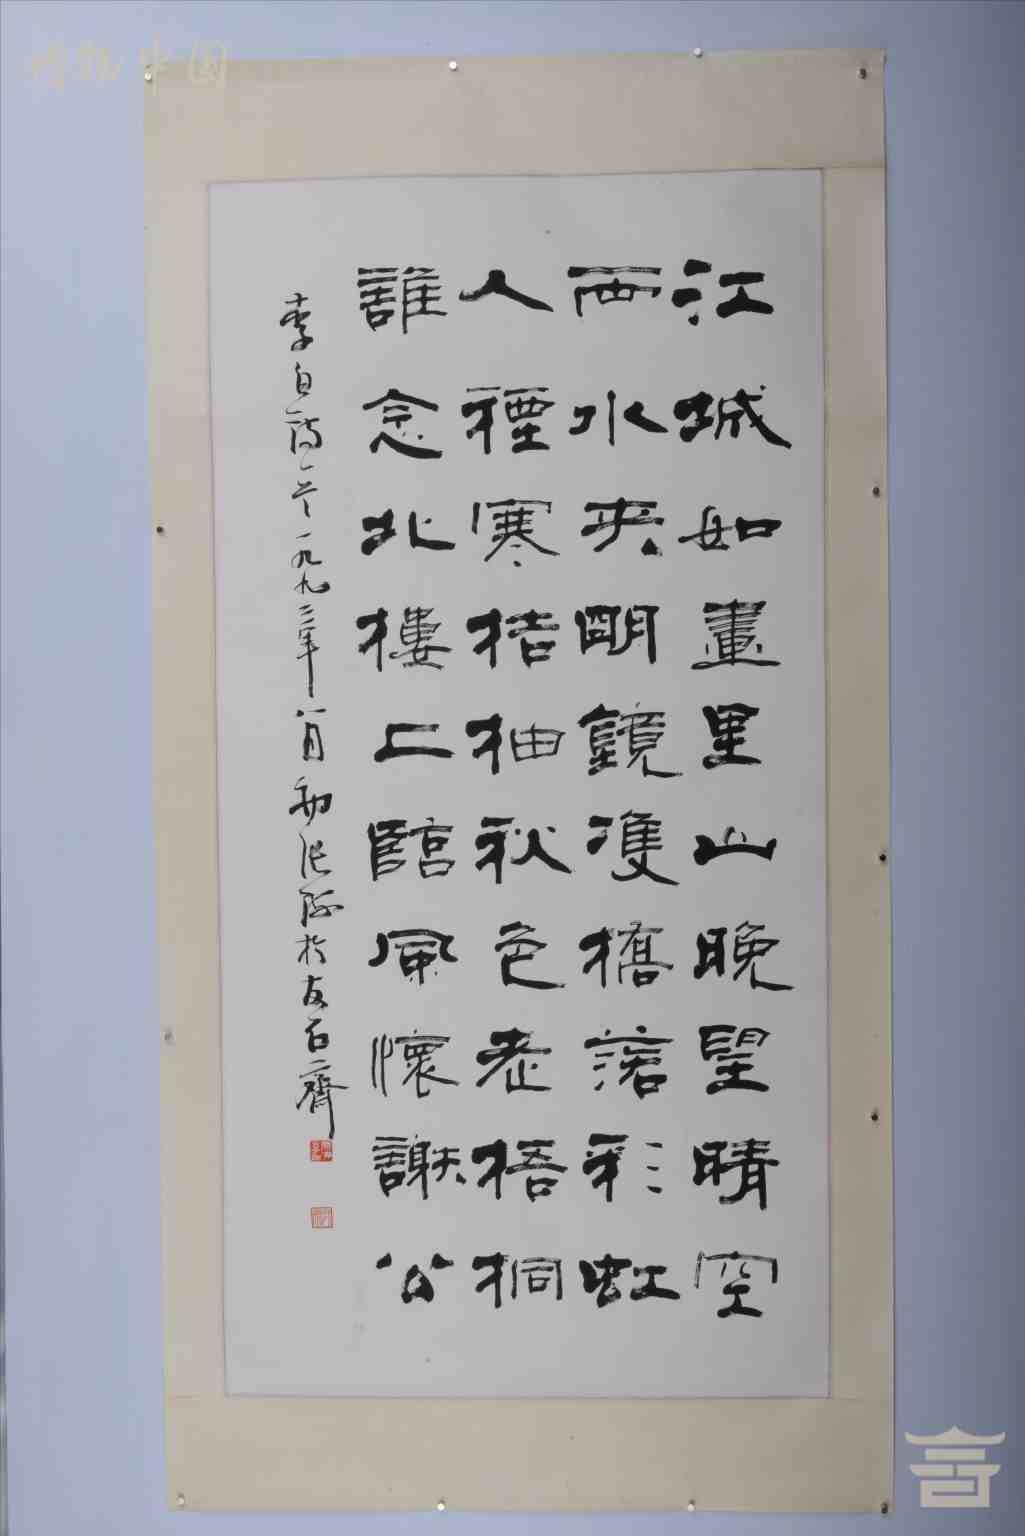 江城如畫里山晚望晴空
两水夾明鏡雙橋落彩虹
人煙寒桔柚秋色老梧桐
誰念北樓上臨風懷謝公
李白詩一首一九九二年八月初於友石齋
博物中国